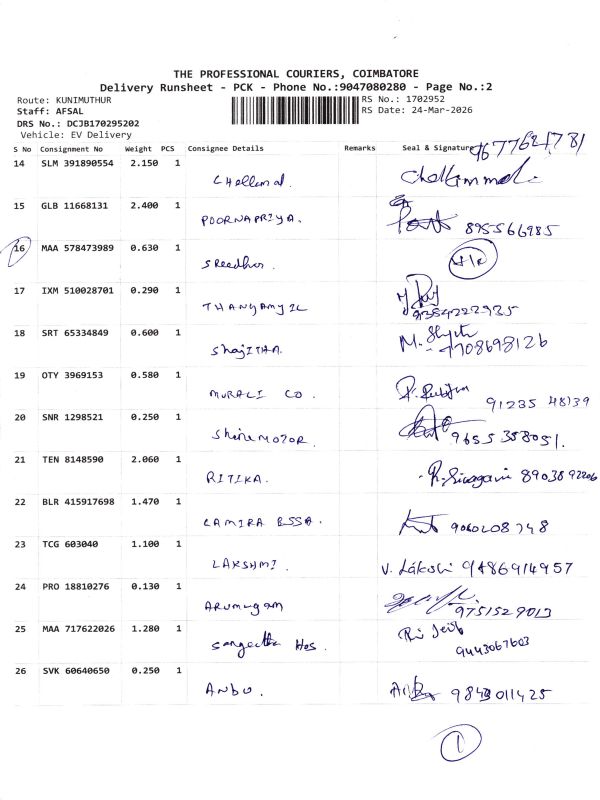 THE PROFESSIONAL COURIERS, COIMBATORE
Delivery Runsheet - PCK - Phone No.:9047080280 - Page No.:2
Route: KUNIMUTHUR RS No.: 1702952
Staff: AFSAL RS Date: 24-Mar-2026
DRS No.: DCJB170295202
Vehicle: EV Delivery
S No Consignment No Weight PCS Consignee Details Remarks Seal & Signature
14 SLM 391890554 2.150 1 Chellamal.
15 GLB 11668131 2.400 1 POORNAPRIYA. 895566985
16 MAA 578473989 0.630 1 Sreedhar.
17 IXM 510028701 0.290 1 THANGAMYIL 9384222925
18 SRT 65334849 0.600 1 ShajITHA. 7708698126
19 OTY 3969153 0.580 1 MURALI CO. 91235 48139
20 SNR 1298521 0.250 1 Shine MOTOR. 9655358051.
21 TEN 8148590 2.060 1 RITIKA. R. Sivagami
22 BLR 415917698 1.470 1 LAMIRA ESSA.
23 TCG 603040 1.100 1 LAKSHMI. V. Lakshmi 9486914957
24 PRO 18810276 0.130 1 ARUMUGAM 9751529013
25 MAA 717622026 1.280 1 Sangeetha Hos. 9443067603
26 SVK 60640650 0.250 1 ANBU. 9843011425
1